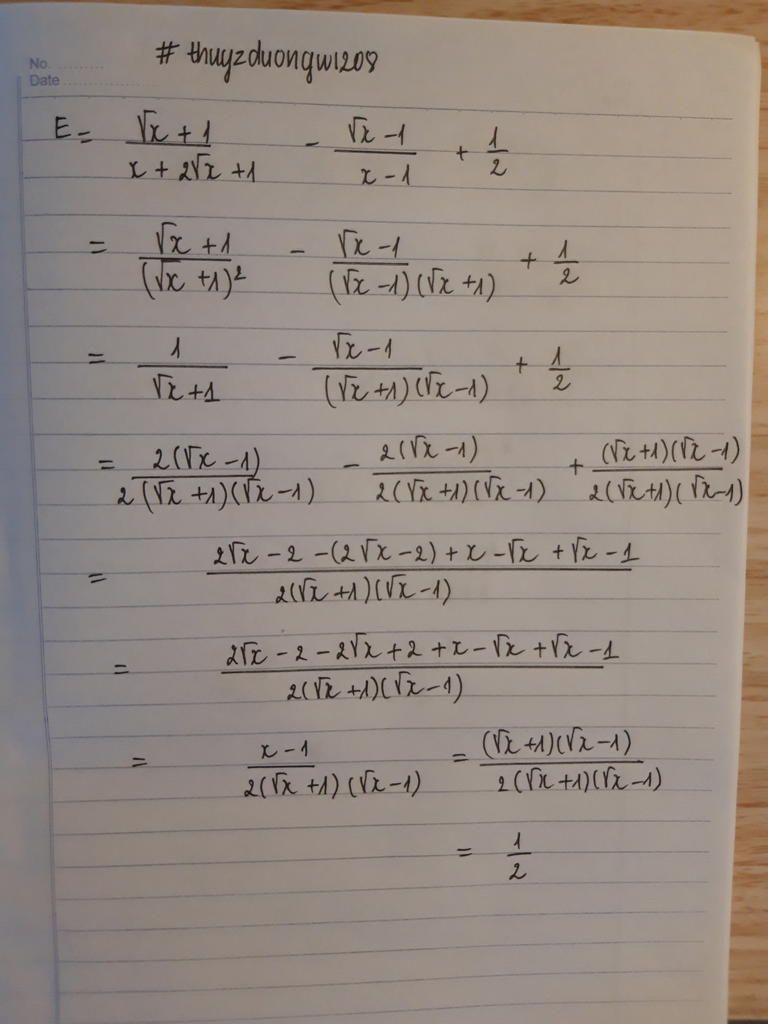 No. ..........
Date ....................
# thuyzduongw1208
E = (√x + 1)/(x + 2√x + 1) - (√x - 1)/(x - 1) + 1/2
= (√x + 1)/(√x + 1)² - (√x - 1)/((√x - 1)(√x + 1)) + 1/2
= 1/(√x + 1) - (√x - 1)/((√x + 1)(√x - 1)) + 1/2
= 2(√x - 1)/(2(√x + 1)(√x - 1)) - 2(√x - 1)/(2(√x + 1)(√x - 1)) + (√x + 1)(√x - 1)/(2(√x + 1)(√x - 1))
= (2√x - 2 - (2√x - 2) + x - √x + √x - 1)/(2(√x + 1)(√x - 1))
= (2√x - 2 - 2√x + 2 + x - √x + √x - 1)/(2(√x + 1)(√x - 1))
= (x - 1)/(2(√x + 1)(√x - 1)) = (√x + 1)(√x - 1)/(2(√x + 1)(√x - 1))
= 1/2